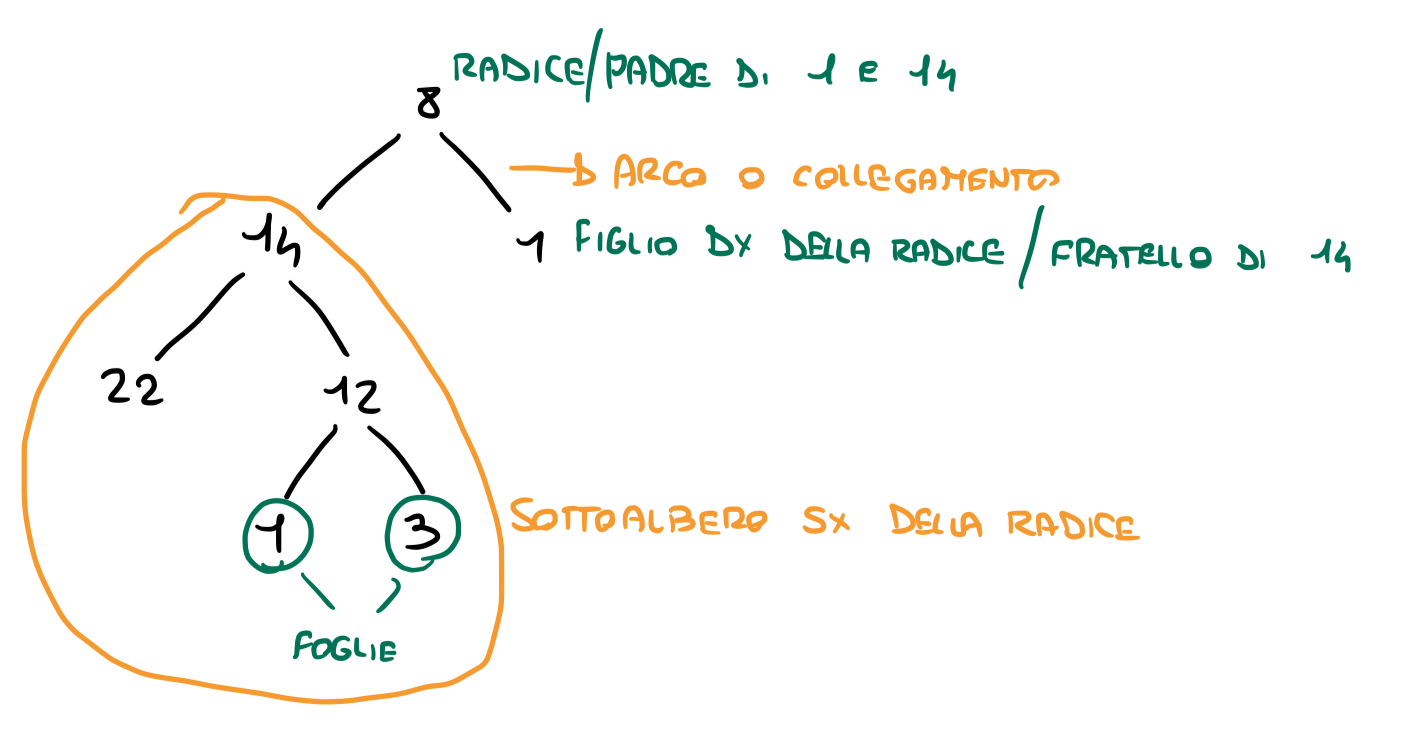 RADICE/PADRE DI 1 E 14
8
→ ARCO O COLLEGAMENTO
14
1 FIGLIO DX DELLA RADICE / FRATELLO DI 14
22 12
1 3
SOTTOALBERO SX DELLA RADICE
FOGLIE